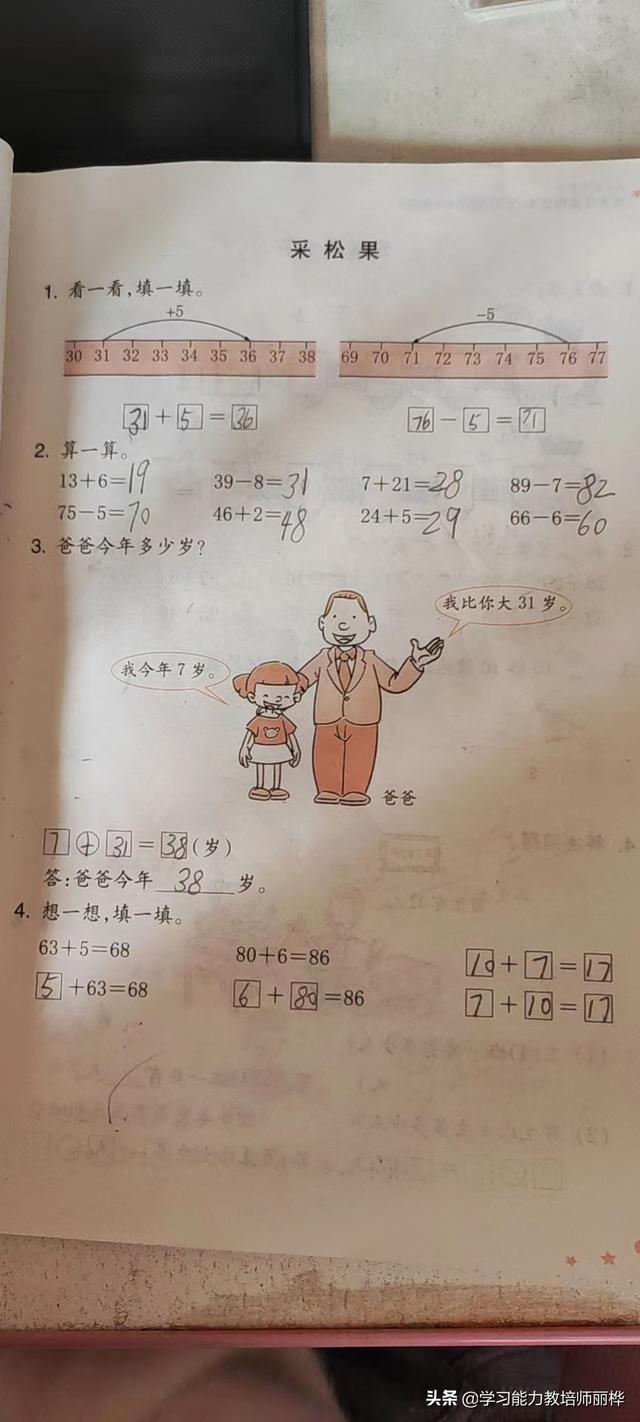 采松果
1. 看一看,填一填。
+5
-5
30 31 32 33 34 35 36 37 38
69 70 71 72 73 74 75 76 77
31+5=36
76-5=71
2. 算一算。
13+6=19 39-8=31 7+21=28 89-7=82
75-5=70 46+2=48 24+5=29 66-6=60
3. 爸爸今年多少岁?
我比你大31岁。
我今年7岁。
爸爸
7+31=38(岁)
答:爸爸今年38岁。
4. 想一想,填一填。
63+5=68 80+6=86 10+7=17
5+63=68 6+80=86 7+10=17
头条 @学习能力教培师丽桦